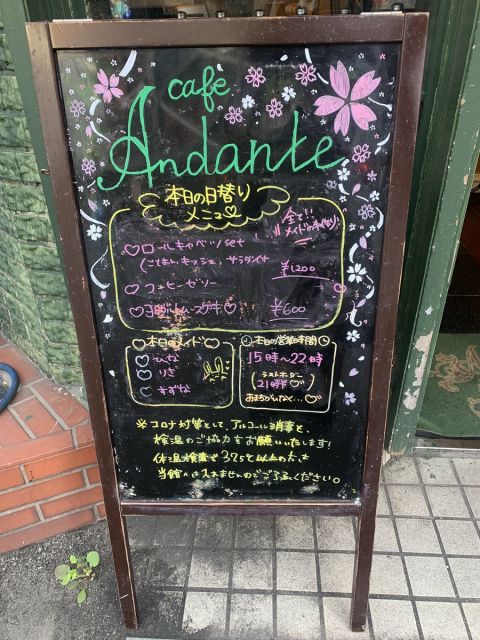 cafe
Andante
本日の日替り
メニュー♡
全て!!
メイドの手作り
♡ロールキャベツset
(ごはん、キッシュ、サラダ付き
¥1200
♡コーヒーゼリー
¥600
♡本日のメイド♡
♡ひな
♡りさ
♡すずな
本日の営業時間
15時〜22時
(ラストオーダー
21時半♡)
おまちがいなく…♡
※コロナ対策として、アルコール消毒と、
検温のご協力をお願いいたします!
体温検査で37.5℃以上の方は
当館へは入れませんのでご了承ください。